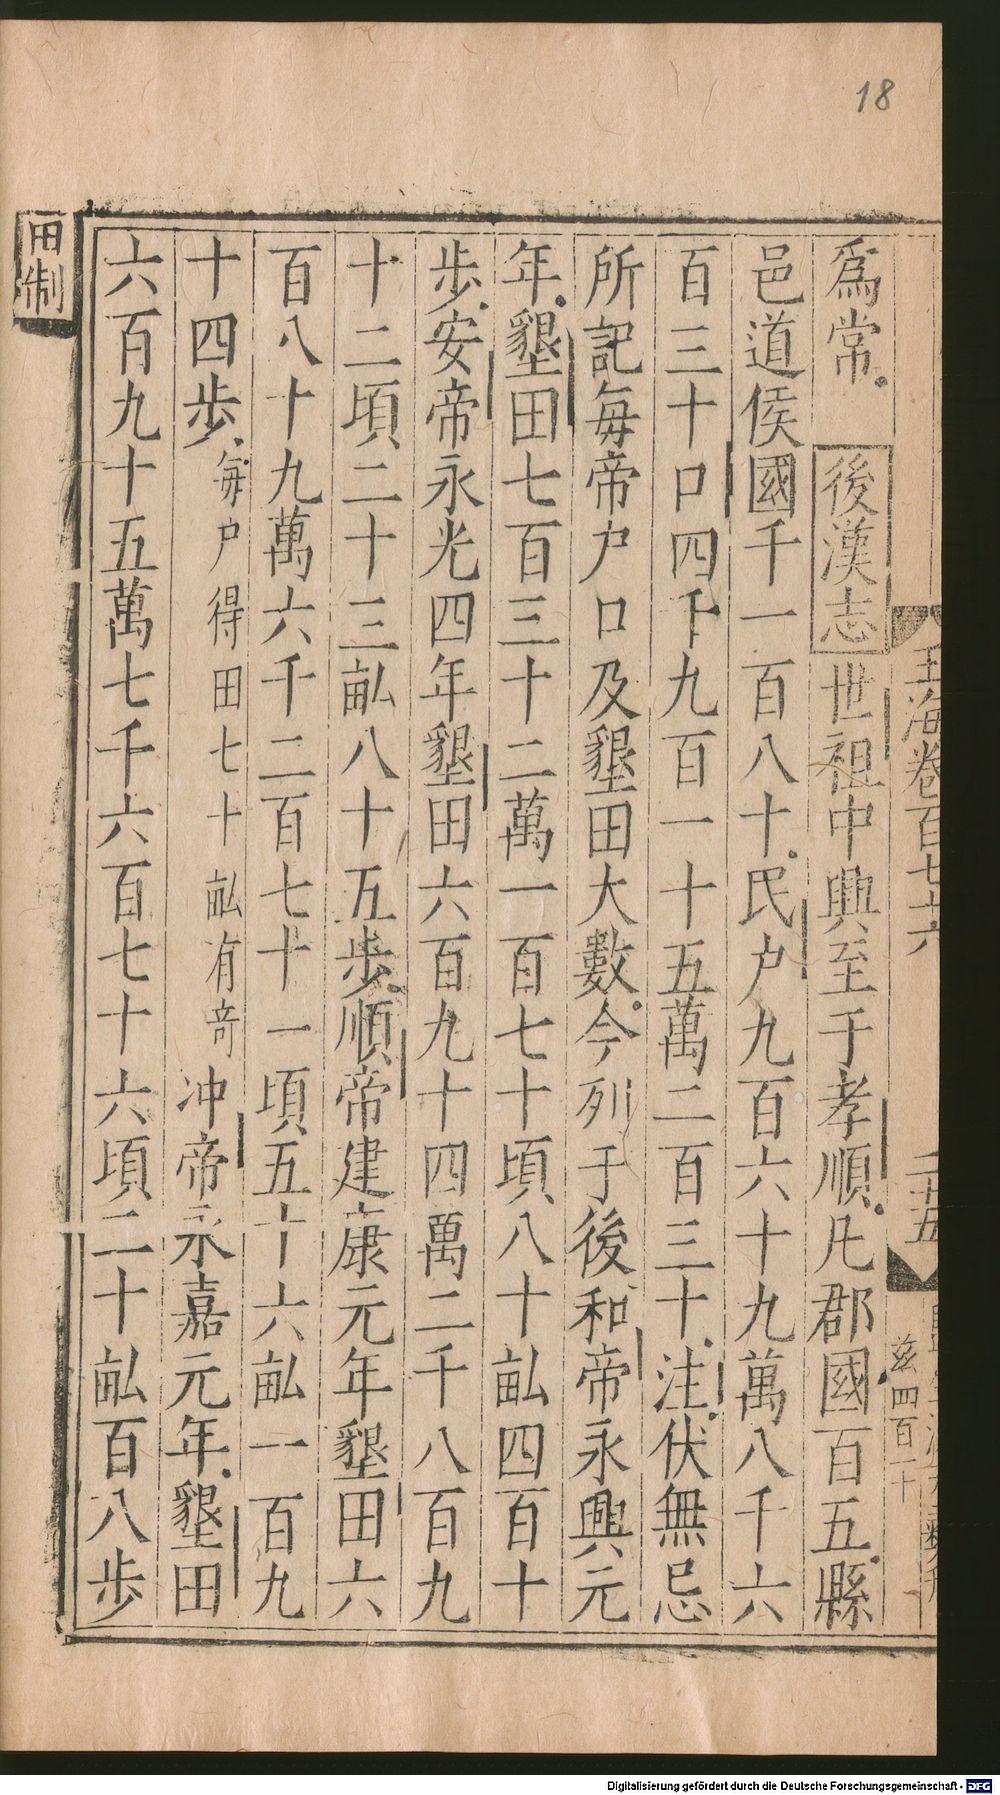 18
玉海卷百七六
二十五
茲四百二十
爲常後漢志世祖中興至于孝順凡郡國百五縣
邑道侯國千一百八十民户九百六十九萬八千六
百三十口四千九百一十五萬二百三十注伏無忌
所記每帝户口及墾田大數今列于後和帝永興元
年墾田七百三十二萬一百七十頃八十畝四百十
步安帝永光四年墾田六百九十四萬二千八百九
十二頃二十三畝八十五步順帝建康元年墾田六
百八十九萬六千二百七十一頃五十六畝一百九
十四步每户得田七十畝有奇冲帝永嘉元年墾田
六百九十五萬七千六百七十六頃二十畝百八步
田制
Digitalisierung gefördert durch die Deutsche Forschungsgemeinschaft - DFG